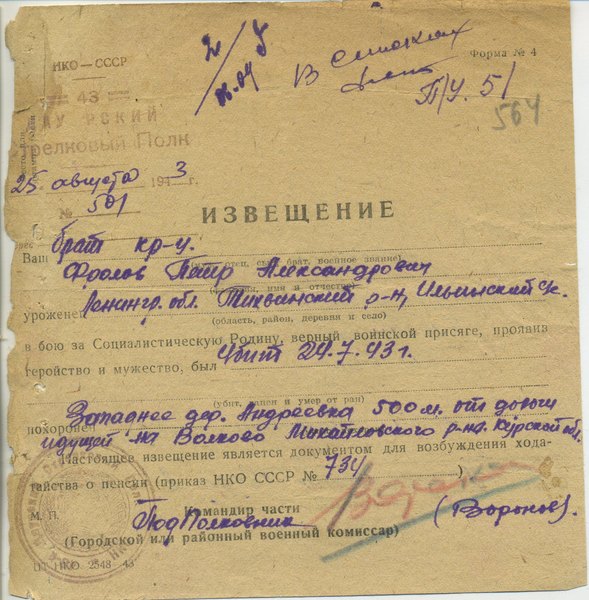 НКО—СССР
Форма № 4
В списках
П/У. 51
564
43
Стрелковый Полк
25 августа 1943 г.
№ 501
ИЗВЕЩЕНИЕ
Ваш брат кр-ц.
(отец, сын, брат, военное звание)
Фролов Петр Александрович
(фамилия, имя и отчество)
уроженец Ленингр. обл. Тихвинский р-н, Ильинский с/с.
(область, район, деревня и село)
в бою за Социалистическую Родину, верный воинской присяге, проявив
геройство и мужество, был Убит 24.7.43 г.
(убит, ранен и умер от ран)
похоронен Западнее дер. Андреевка 500 м. от дороги
идущей на Волково Михайловского р-на Курской обл.
Настоящее извещение является документом для возбуждения хода-
тайства о пенсии (приказ НКО СССР № 734)
М. П.
Командир части
Подполковник (Воронов).
(Городской или районный военный комиссар)
ЦТ НКО 2543—43